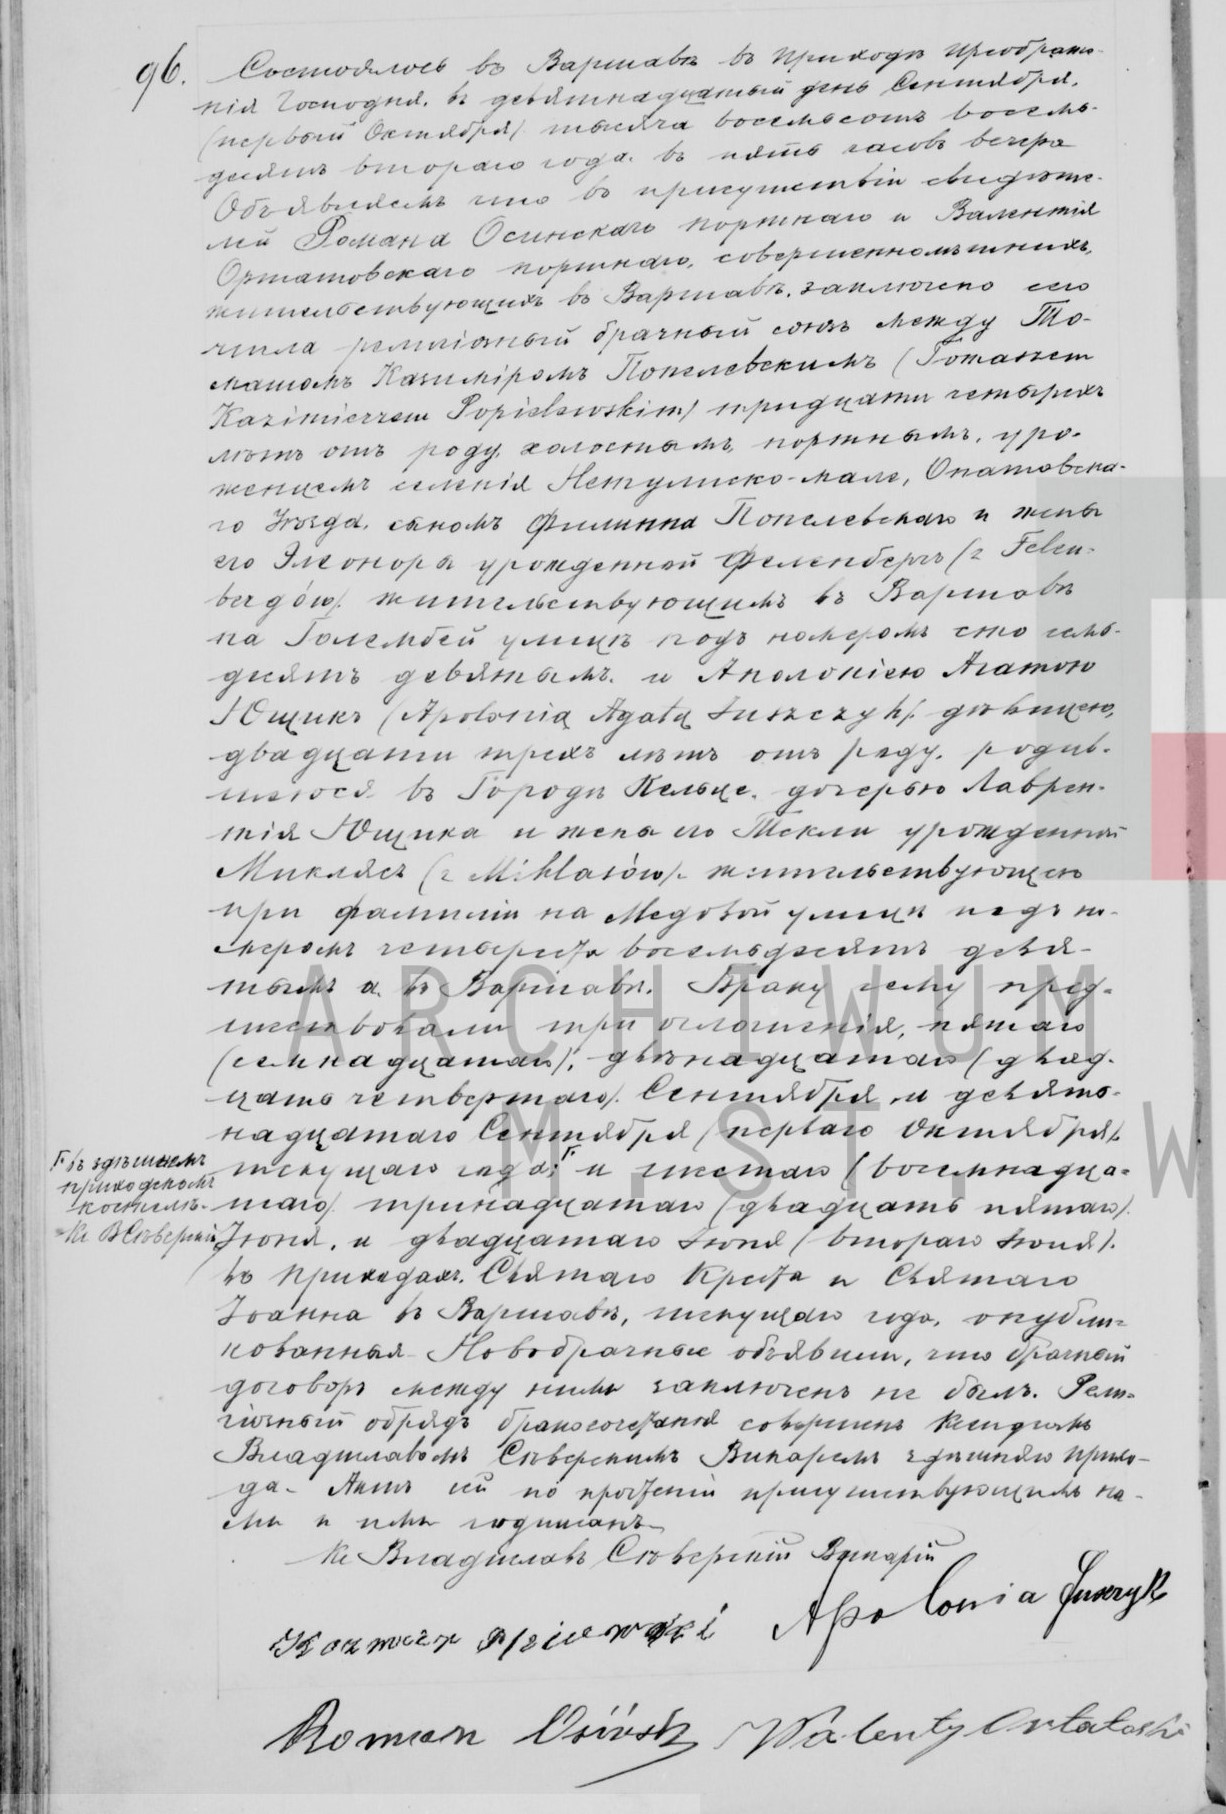 96. Состоялось въ Варшавѣ въ приходѣ Преображе-
нія Господня, въ девятнадцатый день Сентября,
(первый Октября) тысяча восемьсотъ восемь-
десятъ втораго года, въ пять часовъ вечера
Объявляемъ что въ присутствіи свидѣте-
лей Романа Осинскаго портнаго и Валентія
Орташовскаго портнаго, совершеннолѣтнихъ,
жительствующихъ въ Варшавѣ, заключено сего
числа религіозный брачный союзъ между То-
машомъ Казиміромъ Попелевскимъ (Tomaszem
Kazimierzem Popielewskim) тридцати четырехъ
лѣтъ отъ роду, холостымъ, портнымъ, уро-
женцемъ селенія Нетулиско-мале, Опатовска-
го Уѣзда, сыномъ Филиппа Попелевскаго и жены
его Элеоноры урожденной Феленбергъ (z Felen-
bergów) жительствующимъ въ Варшавѣ
на Голембей улицѣ подъ номеромъ сто семь-
десятъ девятымъ, и Аполоніею Агатою
Ющикъ (Apolonią Agatą Juszczyk) дѣвицею,
двадцати трехъ лѣтъ отъ роду, родив-
шеюся въ Городѣ Кельце, дочерью Лаврен-
тія Ющика и жены его Текли урожденной
Миклясъ (z Miklasów) жительствующею
при фамиліи на Медовой улицѣ подъ но-
меромъ четыреста восемьдесятъ девя-
тымъ а въ Варшавѣ. Браку сему пред-
шествовали три оглашенія, пятаго
(семнадцатаго), двѣнадцатаго (двад-
цать четвертаго) Сентября и девято-
надцатаго Сентября (перваго Октября)
Г въ здѣшнемъ
приходскомъ
костелѣ-
Кс ВСѣверскій
текущаго года Г и шестаго (восемнадца-
таго) тринадцатаго (двадцать пятаго)
Іюня, и двадцатаго Іюня (втораго Іюля)
въ приходахъ Святаго Креста и Святаго
Іоанна въ Варшавѣ, текущаго года, опубли-
кованныя Новобрачные объявили, что брачный
договоръ между ними заключенъ не былъ. Рели-
гіозный обрядъ бракосочетанія совершенъ Ксендзомъ
Владиславомъ Сѣверскимъ Викаремъ здѣшняго прихо-
да. Актъ сей по прочтеніи присутствующимъ на-
ми и ими подписанъ
Кс Владиславъ Сѣверскій Викарій
Apolonia Juszczyk
Roman Osińsk Walenty Ortatoski
ARCHIWUM
M. ST. W